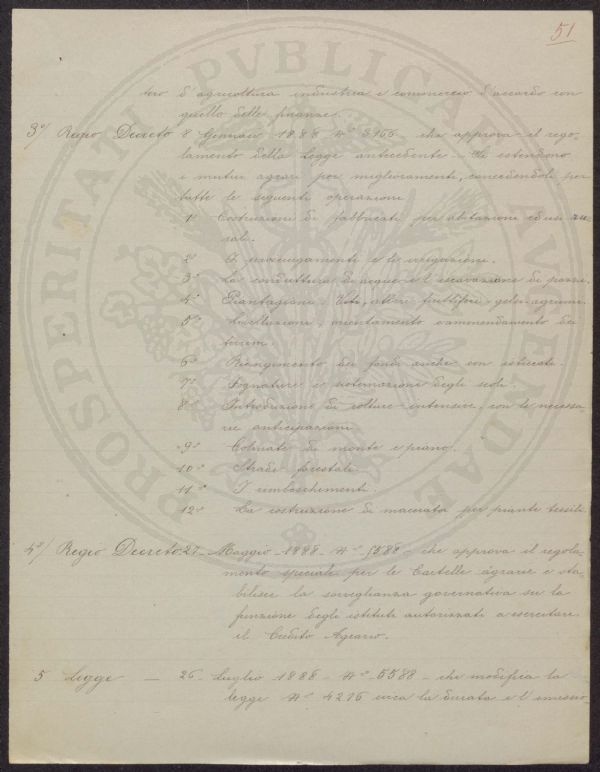 51
tero d'agricoltura industria e commercio d'accordo con
quello delle finanze.
3º/ Regio Decreto 8 Gennaio 1888 Nº 5165 che approva il rego-
lamento della Legge antecedente. Si estendono
i mutui agrari per miglioramenti, concedendoli per
tutte le seguenti operazioni
1º Costruzioni di fabbricati per abitazioni ed usi ru-
rali.
2º I prosciugamenti e le irrigazioni.
3º La conduttura di acque e l'escavazione di pozzi.
4º Piantagioni, Viti, alberi fruttiferi, gelsi, agrumi.
5º livellazione, orientamento o ammendamento dei
terreni.
6º dei fondi anche con
7º Fognature e sistemazioni degli scoli.
8º Introduzione di colture intensive, con le necessa-
rie anticipazioni
9º Colmate di monte e piano.
10º Strade forestali
11º I rimboschimenti.
12º La costruzione di maceratoi per piante tessili
4º/ Regio Decreto 27 Maggio 1888 Nº che approva il regola-
mento speciale per le Cartelle agrarie e sta-
bilisce la sorveglianza governativa su la
funzione degli istituti autorizzati a esercitare
il Credito Agrario.
5 Legge — 26 Luglio 1888 - Nº 5588 - che modifica la
legge Nº 4276 circa la durata e l'emissio-
PROSPERITATI PVBLICAE AVGENDAE